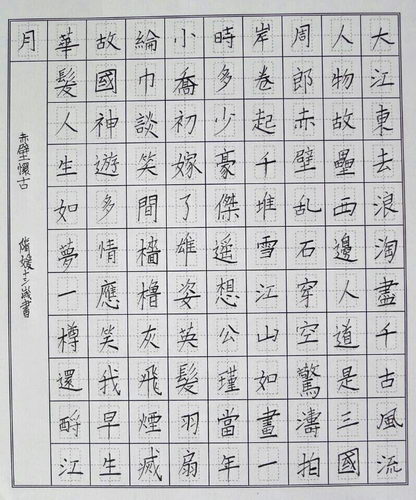 大江東去浪淘盡千古風流
人物故壘西邊人道是三國
周郎赤壁乱石穿空驚濤拍
岸卷起千堆雪江山如畫一
時多少豪傑遥想公瑾當年
小喬初嫁了雄姿英髮羽扇
綸巾談笑間檣櫓灰飛煙滅
故國神遊多情應笑我早生
華髮人生如夢一樽還酹江
月
赤壁懷古
媛十歲書